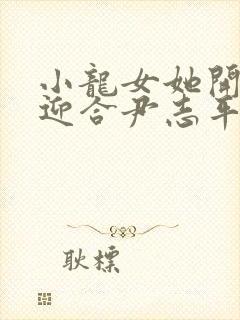 小龍女她開
迎合尹志平
耿標